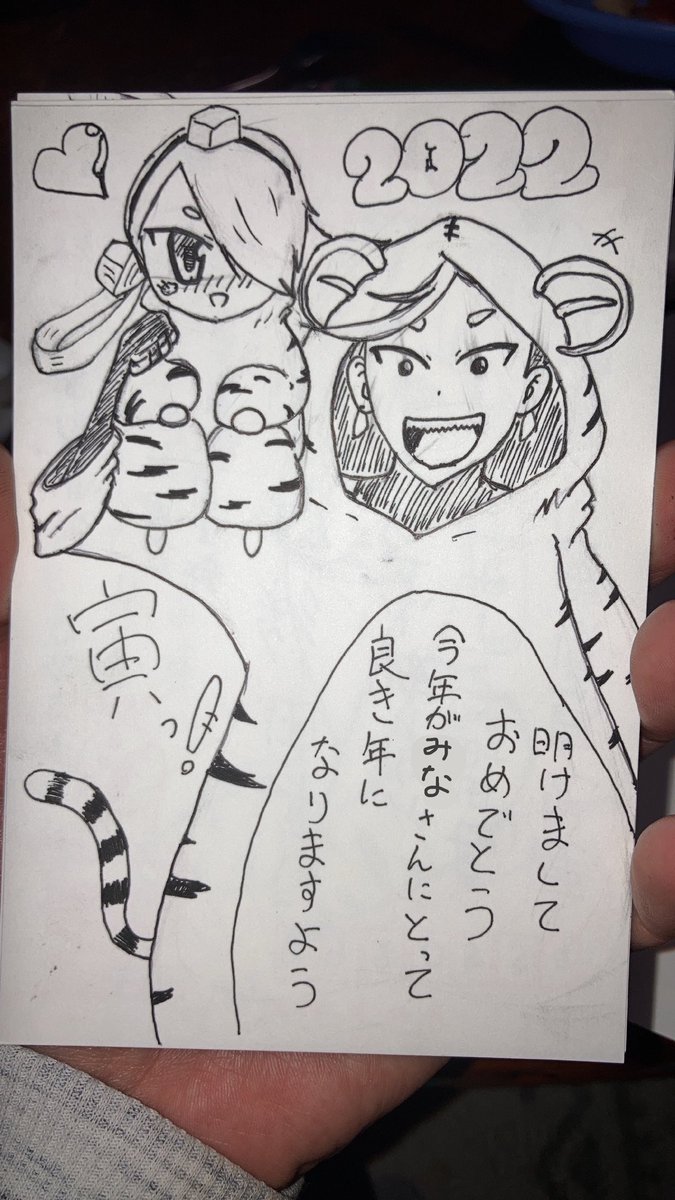 2022
明けまして
おめでとう
今年がみなさんにとって
良き年に
なりますよう
寅っ!。